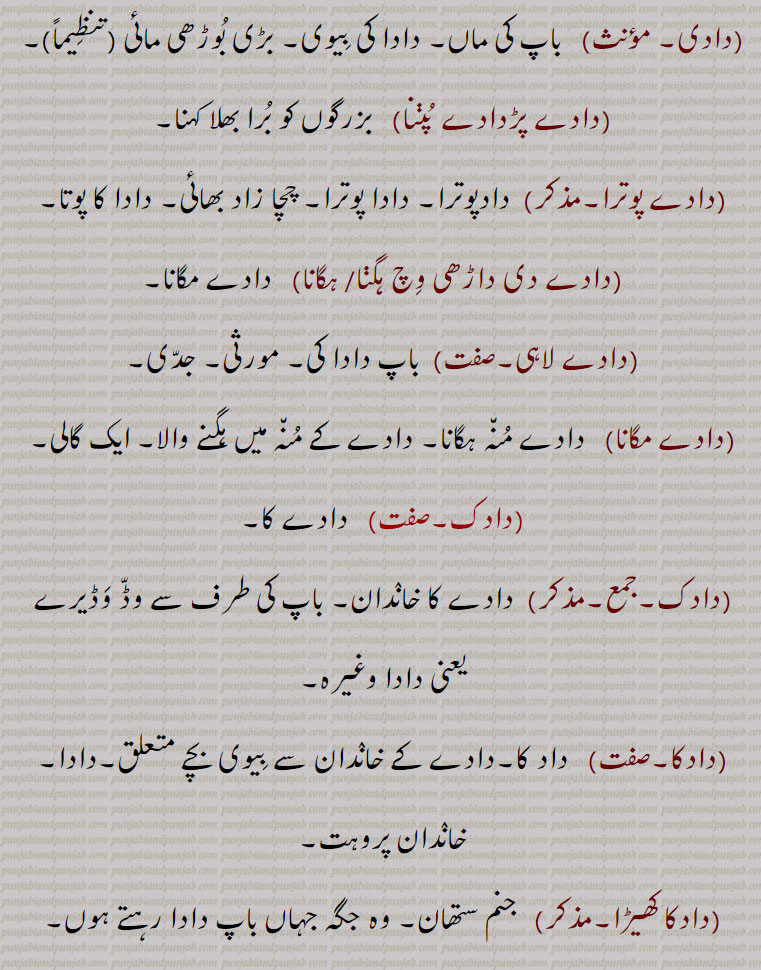 (دادی۔ مؤنث) باپ کی ماں۔ دادا کی بِیوی۔ بڑی بُوڑھی مائی (تنظِیماً)۔
(دادے پڑدادے پُݨنا) بزرگوں کو بُرا بھلا کہنا۔
(دادے پوترا۔مذکر) دادپوترا۔ دادا پوترا۔ چچا زاد بھائی۔ دادا کا پوتا۔
(دادے دی داڑھی وِچ ہگݨا/ ہگانا) دادے مگانا۔
(دادے لاہی۔صفت) باپ دادا کی۔ مورثی۔ جدّی۔
(دادے مگانا) دادے مُنہّ ہگانا۔ دادے کے مُنہّ میں ہگنے والا۔ ایک گالی۔
(دادک۔صفت) دادے کا۔
(دادک۔جمع۔مذکر) دادے کا خانْدان۔ باپ کی طرف سے وڈّ وَڈیرے
یعنی دادا وغیرہ۔
(دادکا۔صفت) داد کا۔دادے کے خانْدان سے بِیوی بچے متعلق۔دادا۔
خانْدان پروہت۔
(دادکا کھیڑا۔مذکر) جنم ستھان۔ وہ جگہ جہاں باپ دادا رہتے ہوں۔